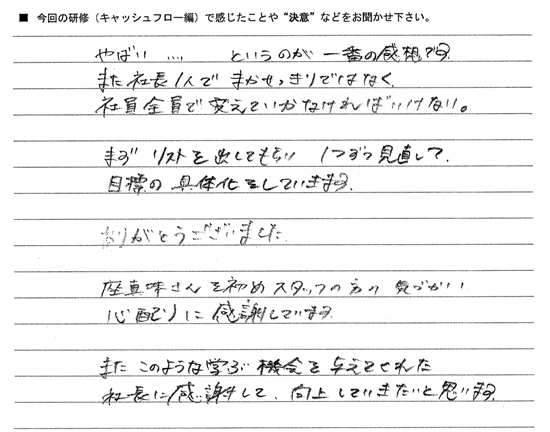 ■ 今回の研修（キャッシュフロー編）で感じたことや“決意”などをお聞かせ下さい。
やばい … というのが 一番の感想です
また 社長1人で まかせっきりではなく、
社員全員で変えていかなければいけない。
まず リストを出してもらい 1つずつ見直して、
目標の 具体化をしていきます。
ありがとうございました
座真味さんを初めスタッフの方の 気づかい
心配りに 感謝しています。
また このような学ぶ機会を 与えてくれた
社長に感謝して、向上していきたいと思います。